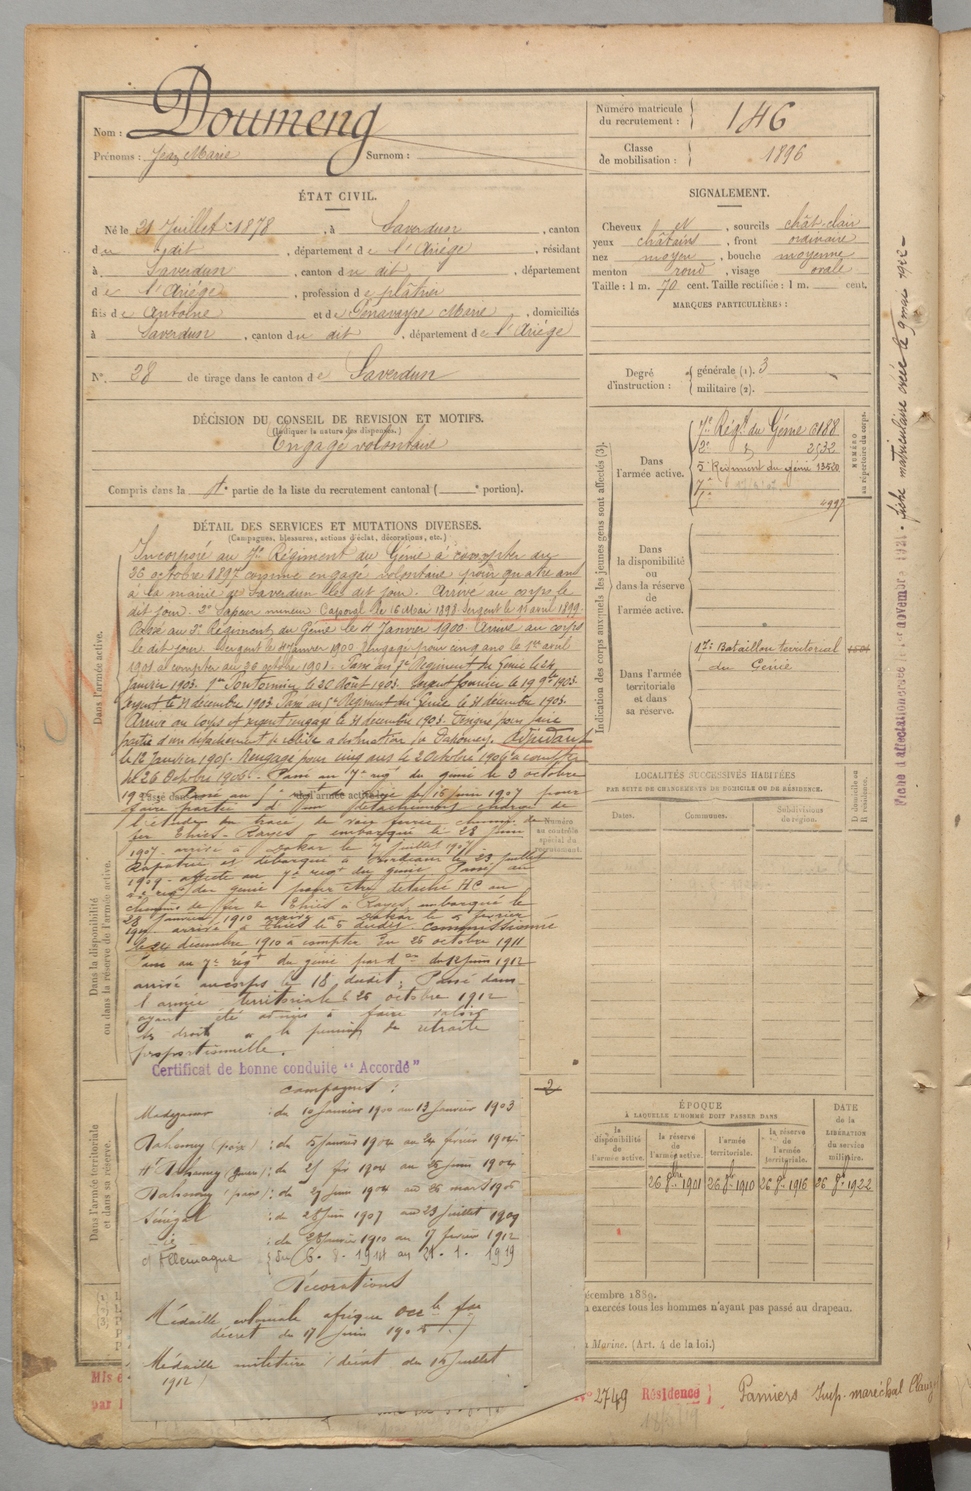 Nom : Doumeng
Prénoms : Jean Marie Surnom :
Numéro matricule du recrutement : 146
Classe de mobilisation : 1896
ÉTAT CIVIL.
Né le 21 Juillet 1878, à Saverdun, canton
du dit, département de l'Ariège, résidant
à Saverdun, canton du dit, département
de l'Ariège, profession de plâtrier
fils de Antoine et de Marie, domiciliés
à Saverdun, canton du dit, département de l'Ariège
N° 28 de tirage dans le canton de Saverdun
SIGNALEMENT.
Cheveux et, sourcils chât. clair
yeux châtains, front ordinaire
nez moyen, bouche moyenne
menton rond, visage ovale
Taille : 1 m. 70 cent. Taille rectifiée : 1 m. cent.
MARQUES PARTICULIÈRES :
Degré d'instruction : générale (1). 3
militaire (2).
DÉCISION DU CONSEIL DE REVISION ET MOTIFS.
(Indiquer la nature des dispenses.)
Engagé volontaire
Compris dans la partie de la liste du recrutement cantonal ( portion).
DÉTAIL DES SERVICES ET MUTATIONS DIVERSES.
(Campagnes, blessures, actions d'éclat, décorations, etc.)
Incorporé au 7e Régiment du Génie à compter du
26 octobre 1897 comme engagé volontaire pour quatre ans
à la mairie de Saverdun le dit jour. Arrivé au corps le
dit jour. 2e Sapeur mineur Caporal le 16 Mai 1898 Sergent le 11 avril 1899
Passé au Régiment du Génie le 11 Janvier 1900. Arrivé au corps
le dit jour. Sergent le 11 Janvier 1900. Rengagé pour cinq ans le 1er avril
1901 à compter du 26 octobre 1901. Passé au 7e Régiment du Génie le 24
Janvier 1903. Pontonnier le 20 Août 1903. Sergent fourrier le 19 9bre 1903.
Sergent le 11 décembre 1903 Passé au 5e Régiment du Génie le 11 décembre 1903.
Arrivé au corps et sergent rengagé le 11 décembre 1903. Désigné pour faire
partie d'un détachement de relève à destination du Dahomey. Adjudant
le 12 Janvier 1905. Rengagé pour cinq ans le 2 Octobre 1906 à compter
du 26 Octobre 1906. Passé au 7e rég. du génie le 3 octobre
le 15 juin 1907 pour
faire partie d'un détachement chargé de
l'étude du tracé de voie ferrée chemin de
fer Thiès-Kayes embarqué le 28 Juin
1907 arrivé à Dakar le 7 juillet 1907
Rapatrié et débarqué à Bordeaux le 23 juillet
1909 affecté au 7e régt du génie Passé au
régt du génie pour être détaché HC au
chemin de fer de Thiès à Kayes embarqué le
28 Janvier 1910 arrivé à Dakar le 5 février
arrivé à Thiès le 5 dudit. Commissionné
le décembre 1910 à compter du 26 octobre 1911
Passé au 7e régt du génie par don du 12 juin 1912
arrivé au corps le 18 dudit, Passé dans
l'armée territoriale le 26 octobre 1912
ayant été admis à faire valoir
ses droits à la pension de retraite
proportionnelle.
Certificat de bonne conduite "Accordé"
Campagnes :
Madagascar : du 10 janvier 1900 au 13 janvier 1903
Dahomey (paix) : du 5 janvier 1904 au 24 février 1904
Ht Dahomey (guerre) : du 25 fév 1904 au 26 juin 1904
Dahomey (paix) : du 27 juin 1904 au 26 mars 1906
Sénégal : du 28 juin 1907 au 23 juillet 1909
id : du 28 janvier 1910 au 7 février 1912
c/ Allemagne : du 6. 8. 1914 au 21. 1. 1919
Décorations
Médaille coloniale afrique occle fse
décret du 17 juin 1905
Médaille militaire (décret du 14 juillet
1912)
Indication des corps auxquels les jeunes gens sont affectés (3).
Dans l'armée active.
7e Régt du Génie 6188
2e d° 3532
5e Régiment du Génie 13520
7e
1er 4997
NUMÉRO au répertoire du corps.
Dans la disponibilité ou dans la réserve de l'armée active.
Dans l'armée territoriale et dans sa réserve.
17e Bataillon territorial
du Génie
LOCALITÉS SUCCESSIVES HABITÉES
PAR SUITE DE CHANGEMENTS DE DOMICILE OU DE RÉSIDENCE.
Dates. Communes. Subdivisions de région.
D domicile ou R résidence.
Numéro au contrôle spécial du recrutement.
2
Dans l'armée active.
Dans la disponibilité ou dans la réserve de l'armée active.
Dans l'armée territoriale et dans sa réserve.
ÉPOQUE
À LAQUELLE L'HOMME DOIT PASSER DANS
la disponibilité de l'armée active.
la réserve de l'armée active.
l'armée territoriale.
la réserve de l'armée territoriale.
DATE DE LA LIBÉRATION du service militaire.
26 8bre 1901 26 8bre 1910 26 8bre 1916 26 8bre 1922
décembre 1889.
exercés tous les hommes n'ayant pas passé au drapeau.
Marine. (Art. 4 de la loi.)
Mis
par
N° 2749 Résidence Pamiers Imp. maréchal Clauzel
Fiche d'affectation créée le 1er novembre 1921. Fiche matriculaire créée le 9 mars 1922